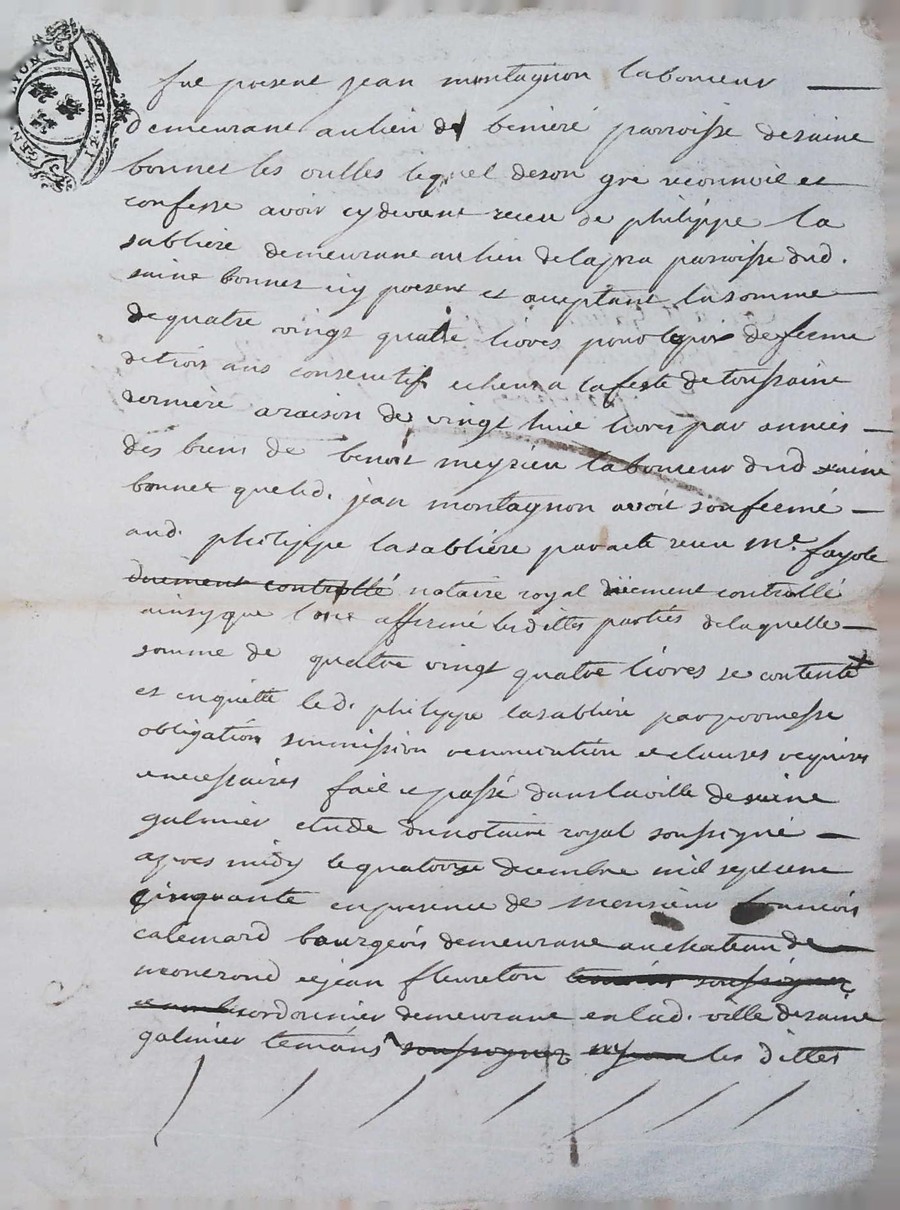 GEN. LYON
fut present jean montagnon laboureur
demeurant au lieu de benieré parroisse de saint
bonnet les oulles lequel de son gré reconnoit et
confesse avoir cy devant receu de philippe la
sabliere demeurant au lieu de lapra parroisse dud.
saint bonnet icy present et acceptant la somme
de quatre vingt quatre livres pour le prix de ferme
de trois ans consecutif echeus a la feste de toussaint
derniere a raison de vingt huit livres par années
des biens de benoit meyrieu laboureur dud saint
bonnet que led. jean montagnon avoit sousfermé
aud. philippe lasabliere par acte receu Me. fayole
duement controllé notaire royal düement controllé
ainsy que l'ont affirmé lesdittes parties de laquelle
somme de quatre vingt quatre livres se contente
et en quitte led. philippe lasabliere par promesse
obligation soumission renonciation et clauses requises
et necessaires fait et passé dans la ville de saint
galmier etude du notaire royal soussigné
apres midy le quatorze decembre mil sept cent
cinquante en presence de monsieur francois
calemard bourgeois demeurant au chateau de
montrond et jean fleureton temoins soussignez
cordonnier demeurant en lad. ville de saint
galmier temoins soussignez les dittes